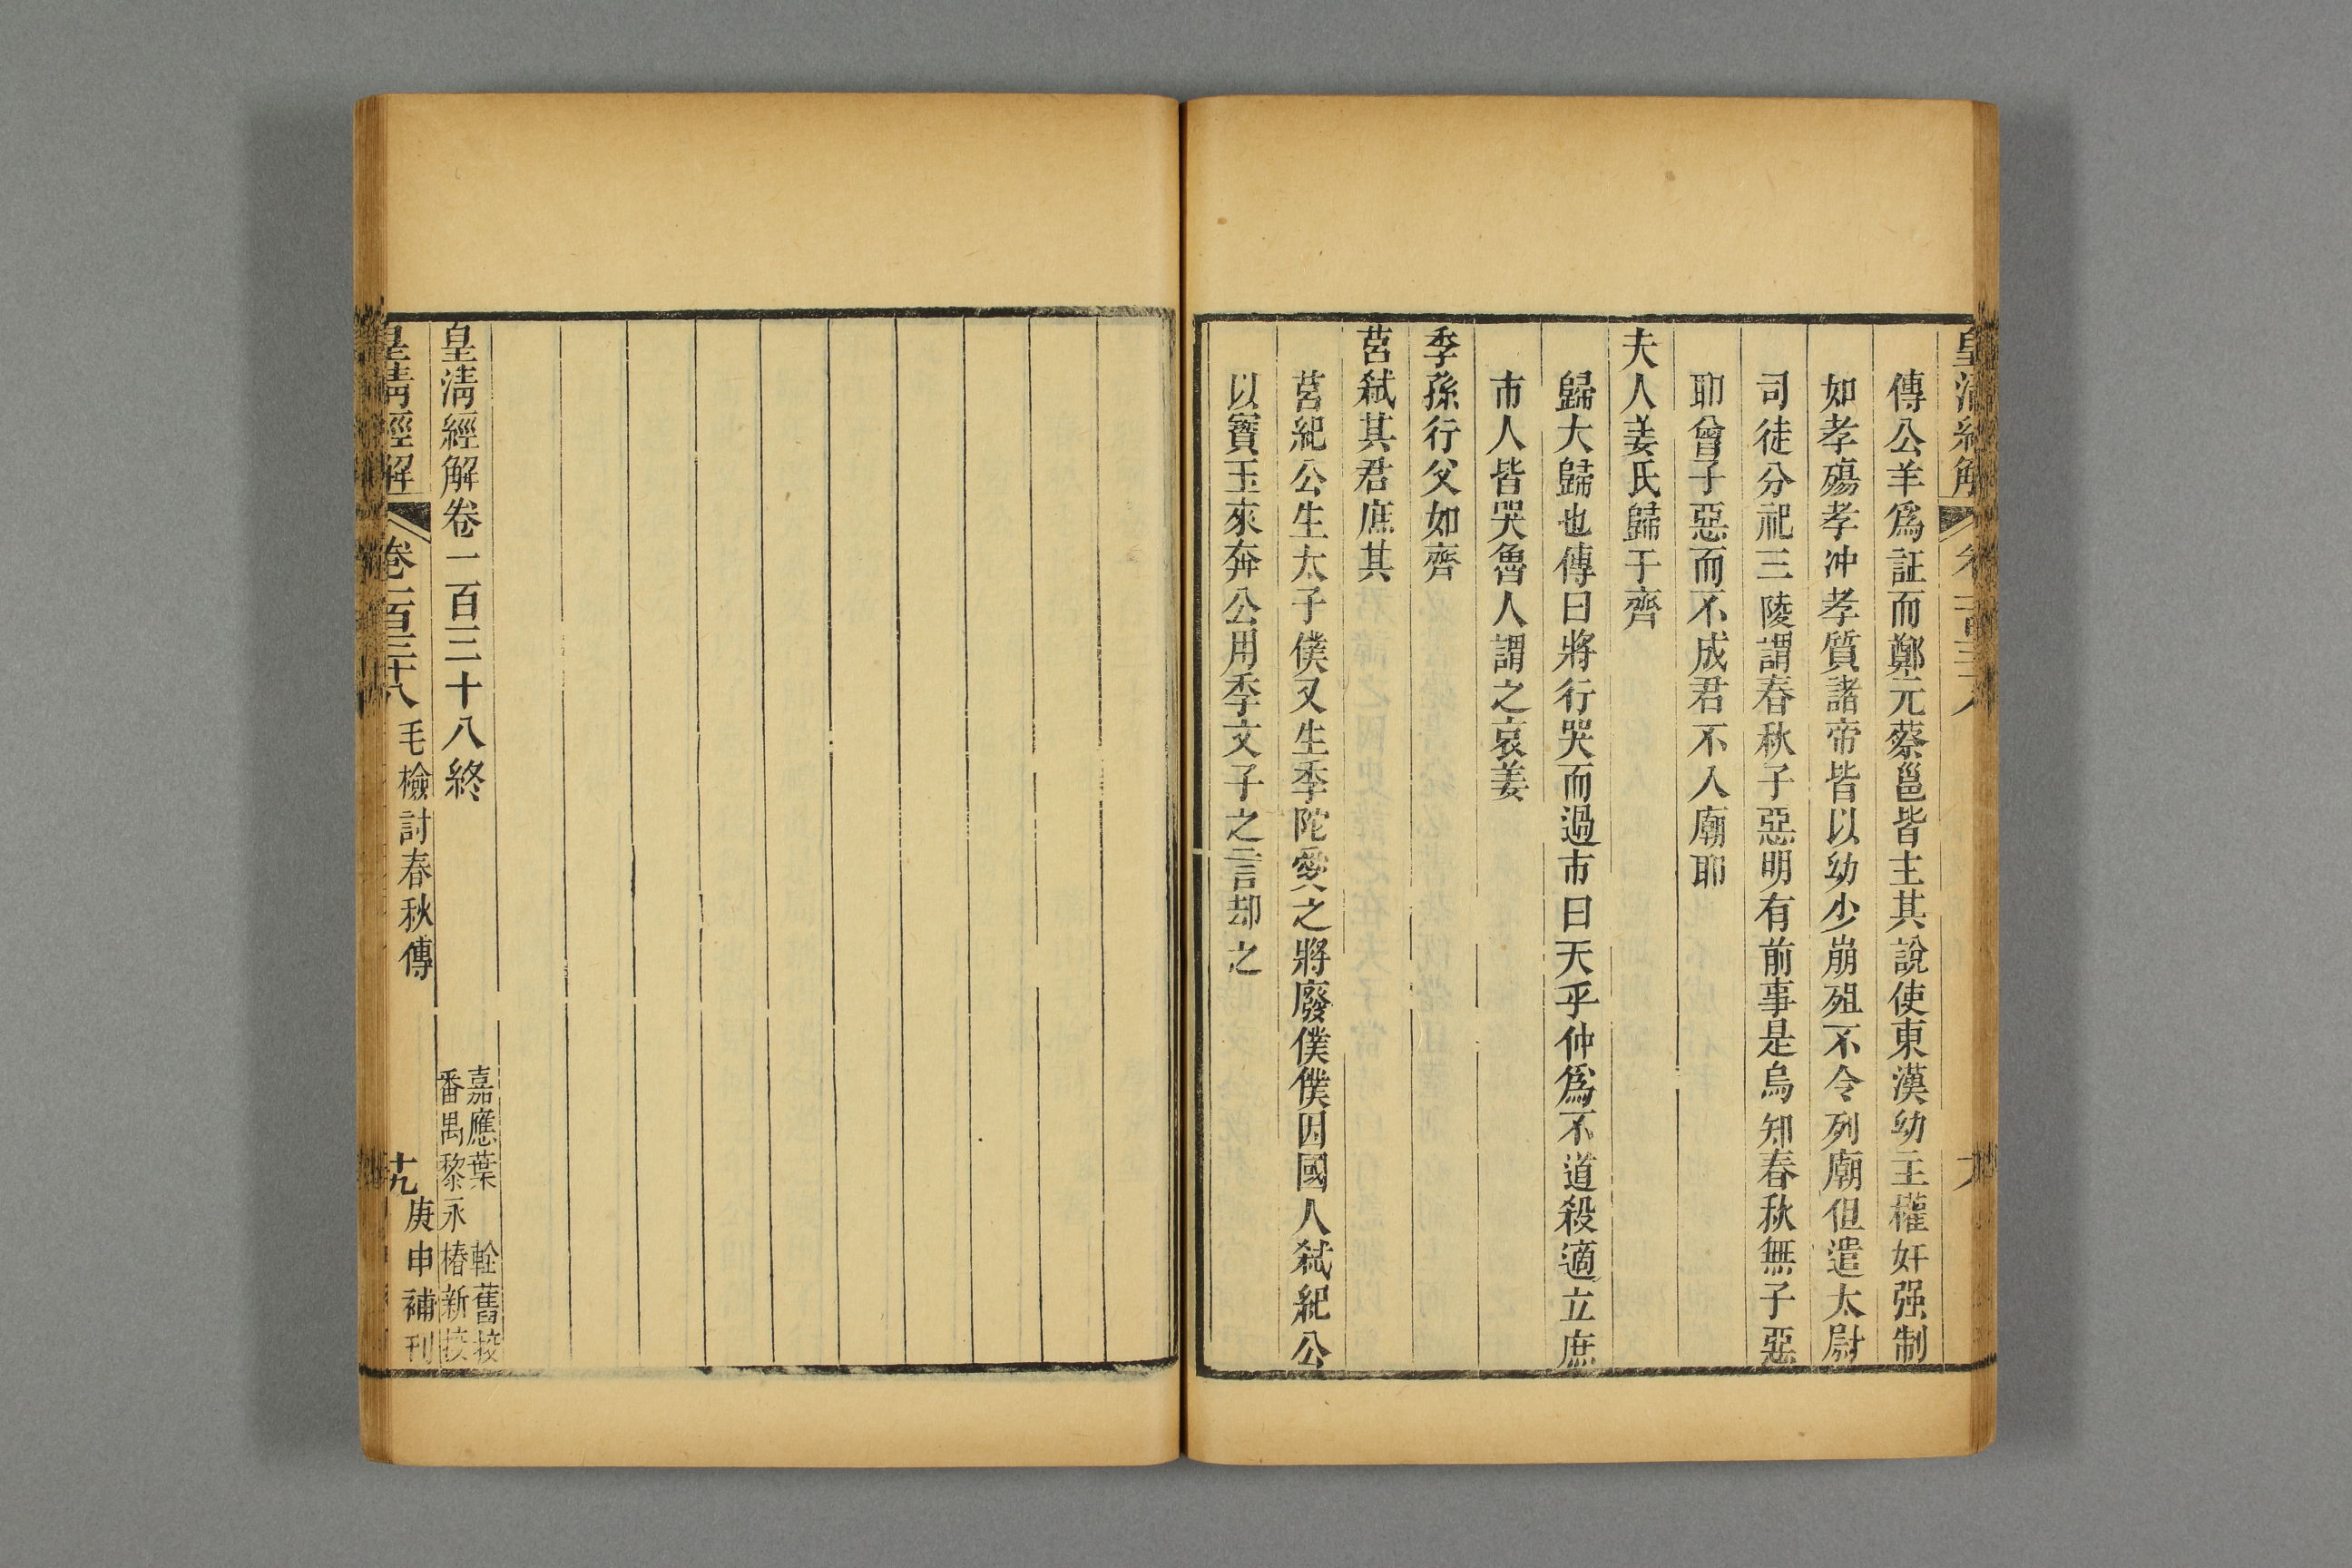 傳公羊爲証而鄭元蔡邕皆主其說使東漢幼主權奸强制
如孝殤孝冲孝質諸帝皆以幼少崩殂不令列廟但遣太尉
司徒分祀三陵謂春秋子惡明有前事是烏知春秋無子惡
耶曾子惡而不成君不入廟耶
夫人姜氏歸于齊
歸大歸也傳曰將行哭而過市曰天乎仲爲不道殺適立庶
市人皆哭魯人謂之哀姜
季孫行父如齊
莒弑其君庶其
莒紀公生太子僕又生季陀愛之將廢僕僕因國人弑紀公
以寶玉來奔公用季文子之言却之
皇清經解卷一百三十八終
嘉應葉 輇舊挍
番禺黎永椿新挍
皇清經解 卷一百三十八 毛檢討春秋傳 十九 庚申補刊